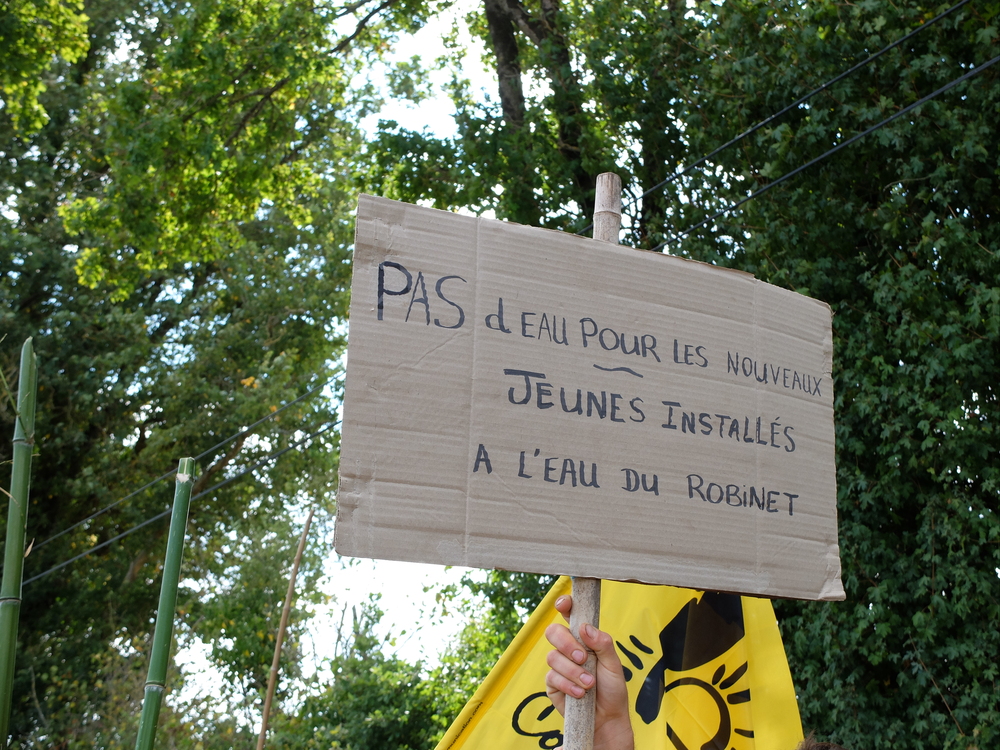 PAS d EAU POUR LES NOUVEAUX
JEUNES INSTALLÉS
A L'EAU DU ROBINET
Co